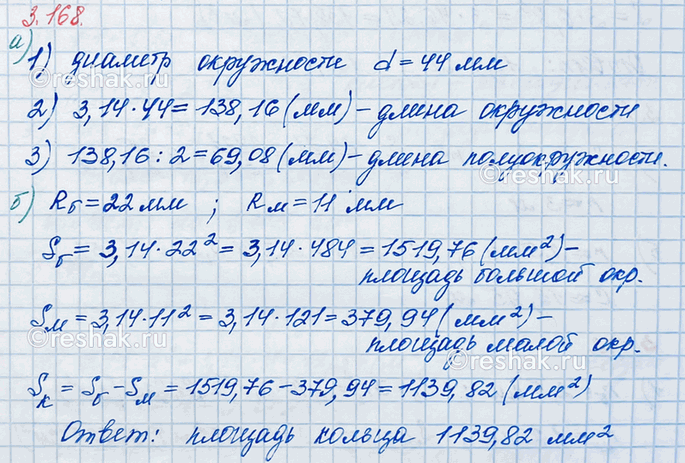 3.168.
а)
1) диаметр окружности d = 44 мм
2) 3,14 · 44 = 138,16 (мм) – длина окружности
3) 138,16 : 2 = 69,08 (мм) – длина полуокружности.
б) Rб = 22 мм ; Rм = 11 мм
Sб = 3,14 · 22² = 3,14 · 484 = 1519,76 (мм²) –
площадь большой окр.
Sм = 3,14 · 11² = 3,14 · 121 = 379,94 (мм²) –
площадь малой окр.
Sк = Sб – Sм = 1519,76 – 379,94 = 1139,82 (мм²)
Ответ: площадь кольца 1139,82 мм²
©reshak.ru
©reshak.ru
©reshak.ru
©reshak.ru